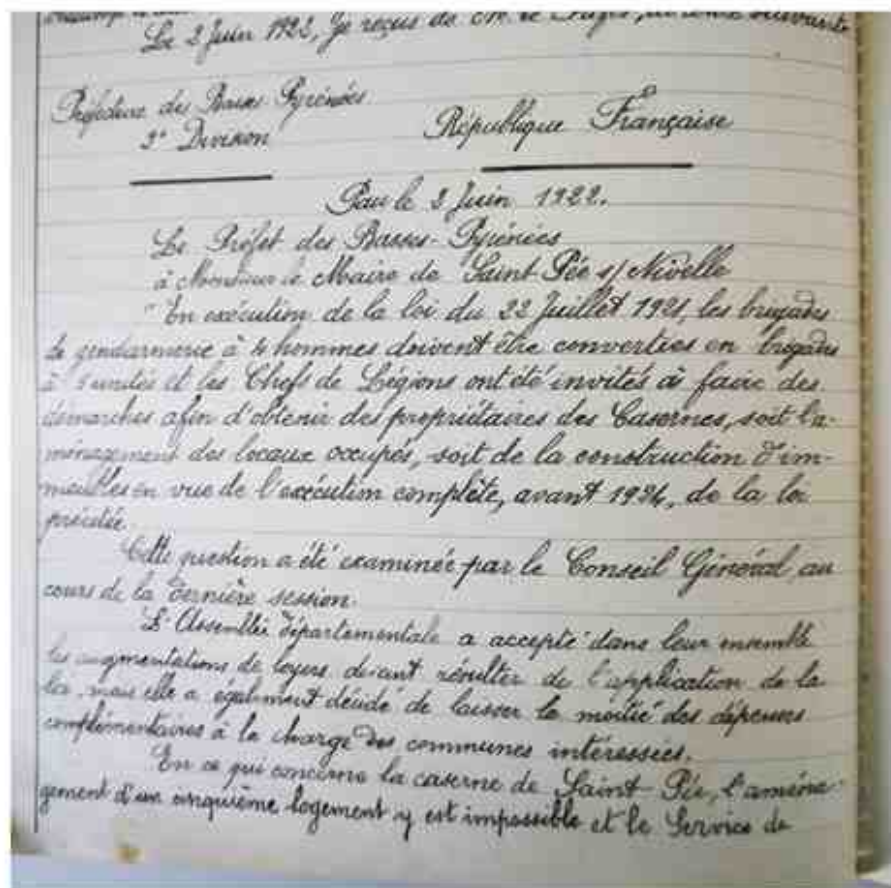 Le 2 Juin 1922, Je reçus de Mr le suivante
Préfecture des Basses Pyrénées
2e Division
République Française
Pau le 2 Juin 1922.
Le Préfet des Basses-Pyrénées
à Monsieur le Maire de Saint-Pée s/ Nivelle
"En exécution de la loi du 22 Juillet 1921, les brigades
de gendarmerie à 4 hommes doivent être converties en brigades
à 5 unités et les Chefs de Légions ont été invités à faire des
démarches afin d'obtenir des propriétaires des Casernes, soit l'a-
ménagement des locaux occupés, soit de la construction d'im-
meubles en vue de l'exécution complète, avant 1924, de la loi
précitée.
Cette question a été examinée par le Conseil Général, au
cours de la dernière session.
L'Assemblée départementale a accepté dans leur ensemble
les augmentations de loyers devant résulter de l'application de la
loi, mais elle a également décidé de laisser la moitié des dépenses
complémentaires à la charge des communes intéressées.
En ce qui concerne la caserne de Saint-Pée, l'aména-
gement d'un cinquième logement y est impossible et le Service de